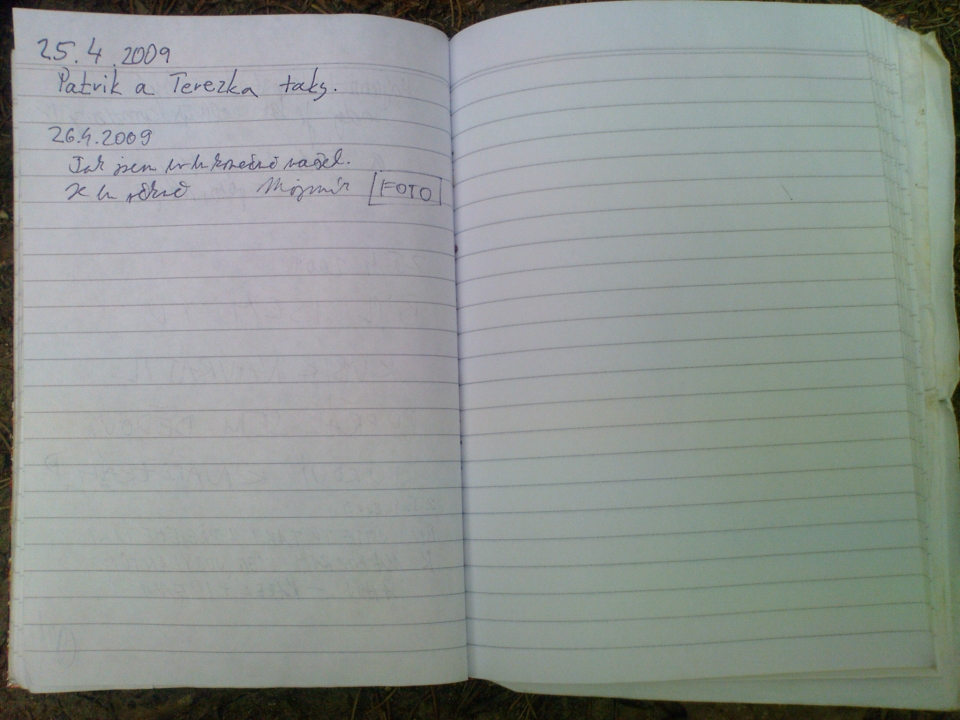 25.4.2009
Patrik a Terezka taky.
26.4.2009
Tak jsem to tu konečně našel.
Je tu pěkně Mojmír [FOTO]